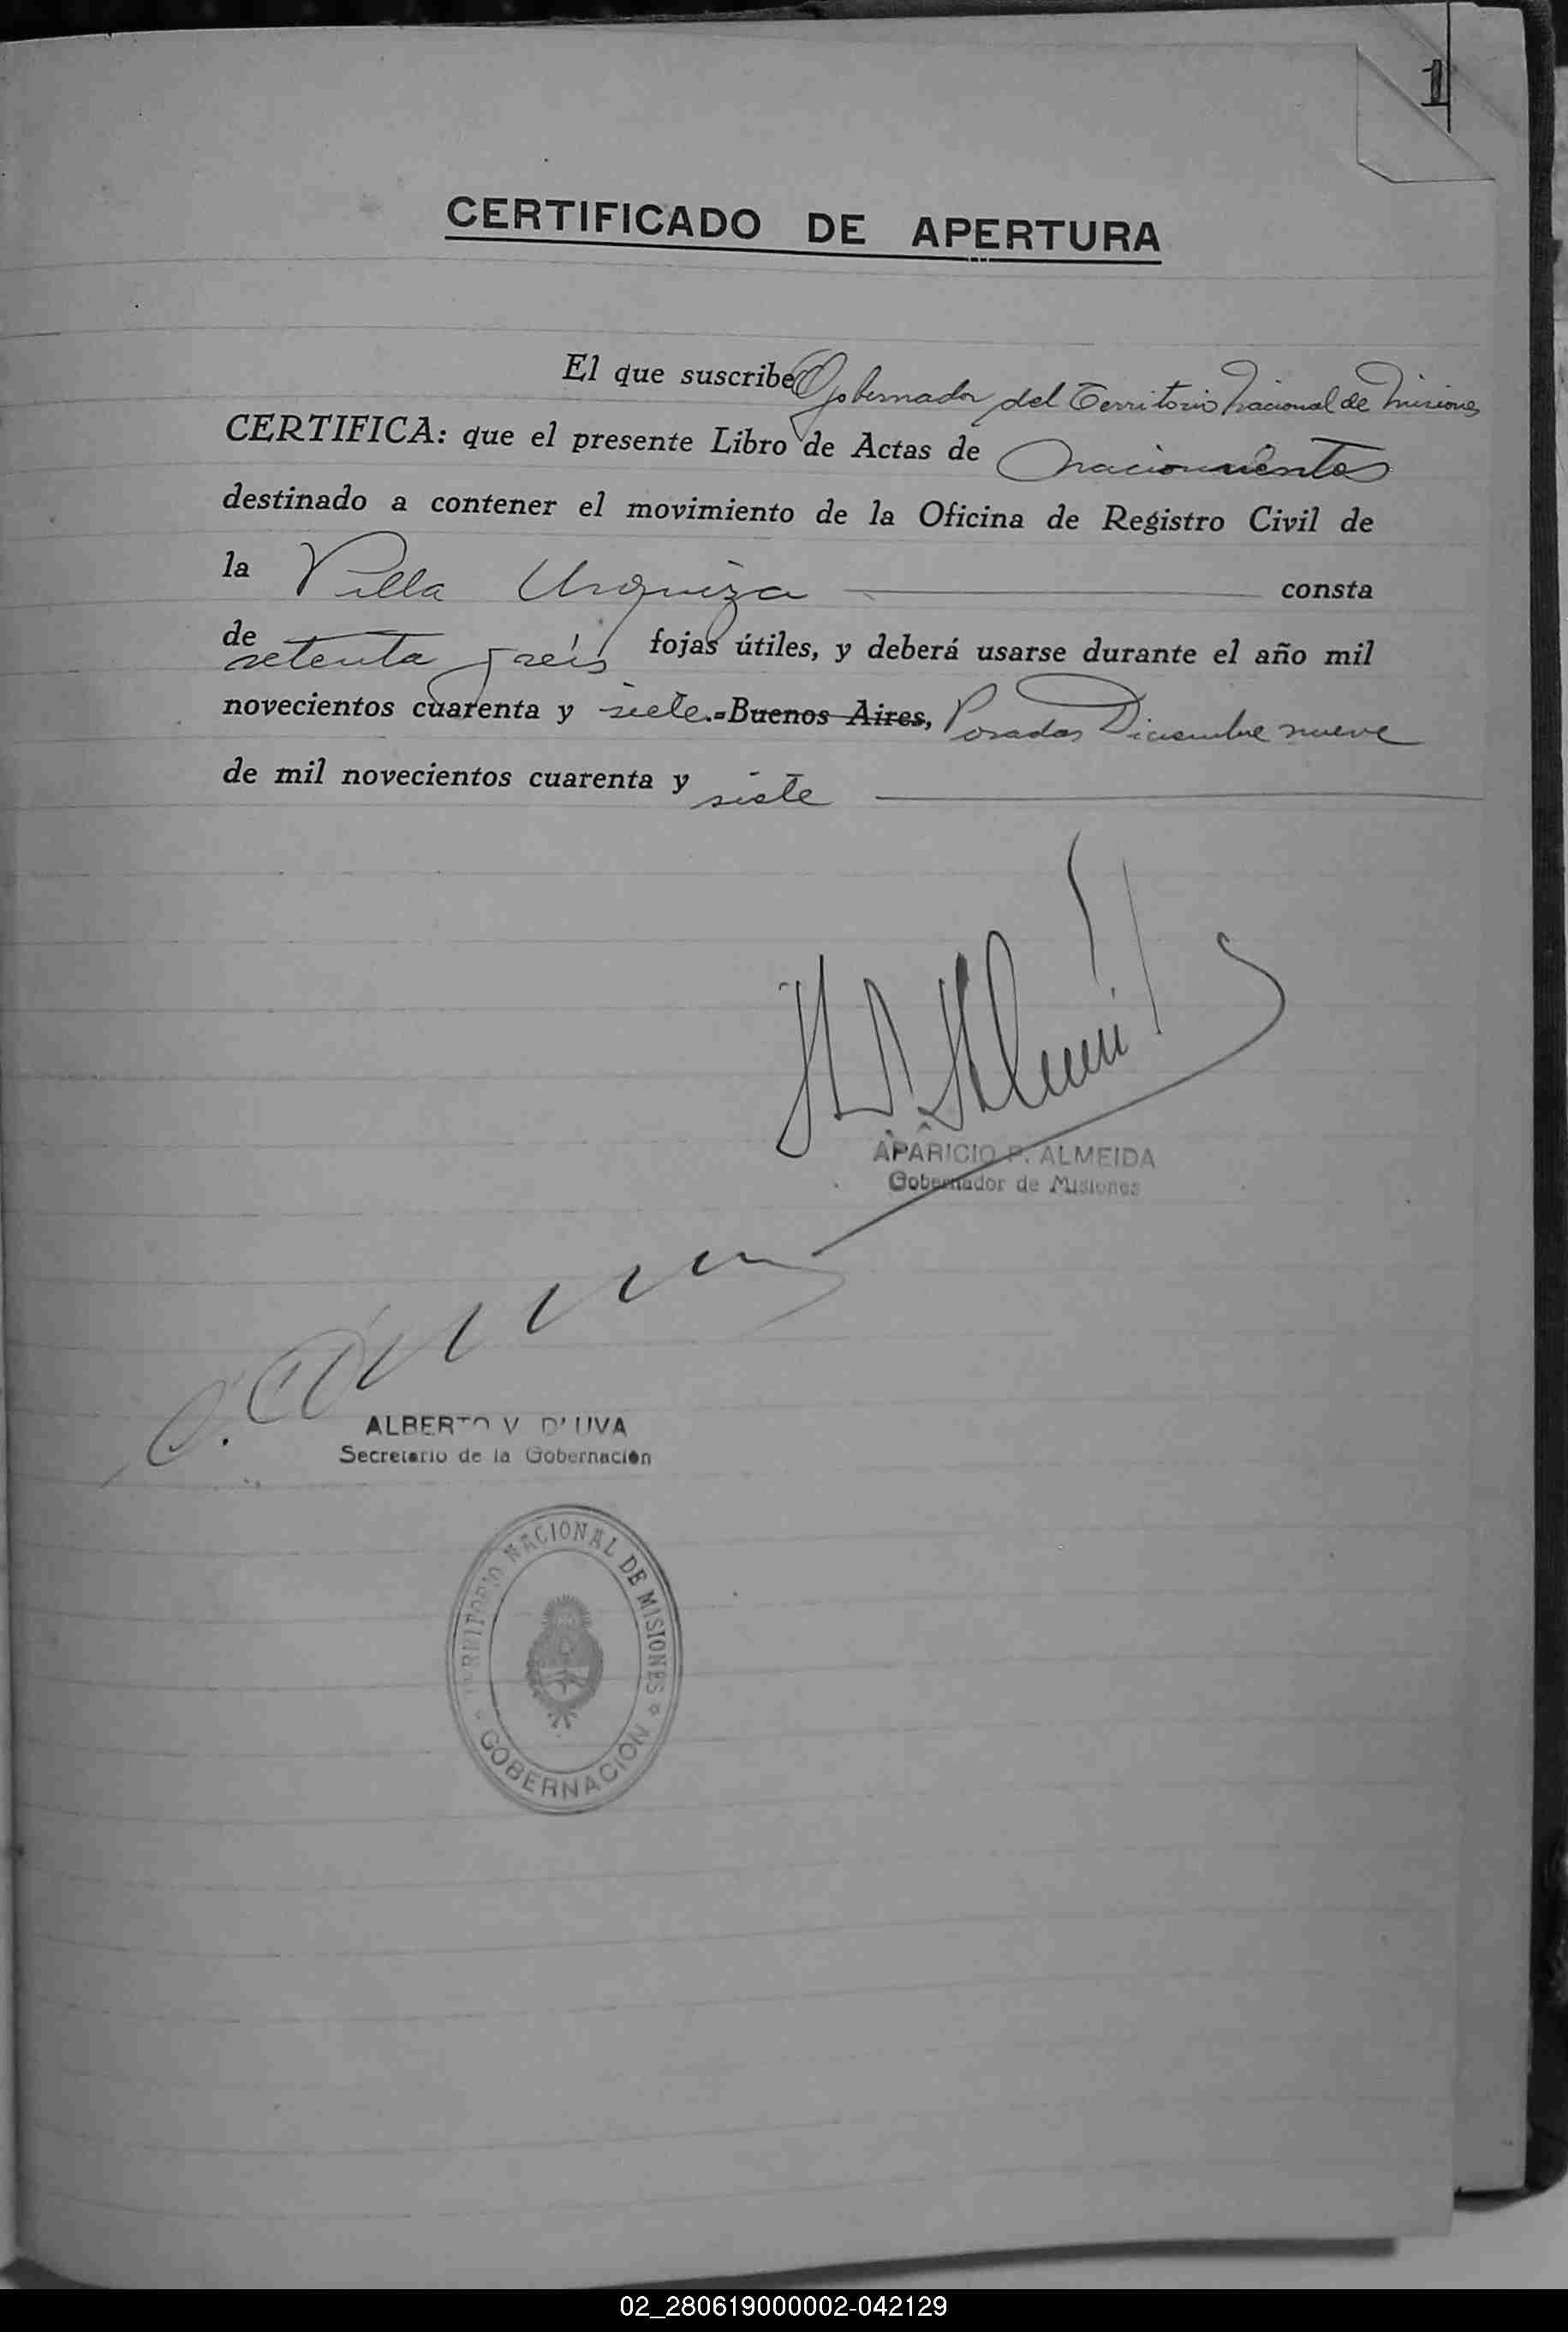 1
CERTIFICADO DE APERTURA
El que suscribe Gobernador del Territorio Nacional de Misiones
CERTIFICA: que el presente Libro de Actas de nacimientos
destinado a contener el movimiento de la Oficina de Registro Civil de
la Villa Urquiza consta
de setenta y seis fojas útiles, y deberá usarse durante el año mil
novecientos cuarenta y siete.=Buenos Aires, Posadas Diciembre nueve
de mil novecientos cuarenta y siete
APARICIO P. ALMEIDA
Gobernador de Misiones
ALBERTO V D'UVA
Secretario de la Gobernación
TERRITORIO NACIONAL DE MISIONES
GOBERNACIÓN
02_280619000002-042129